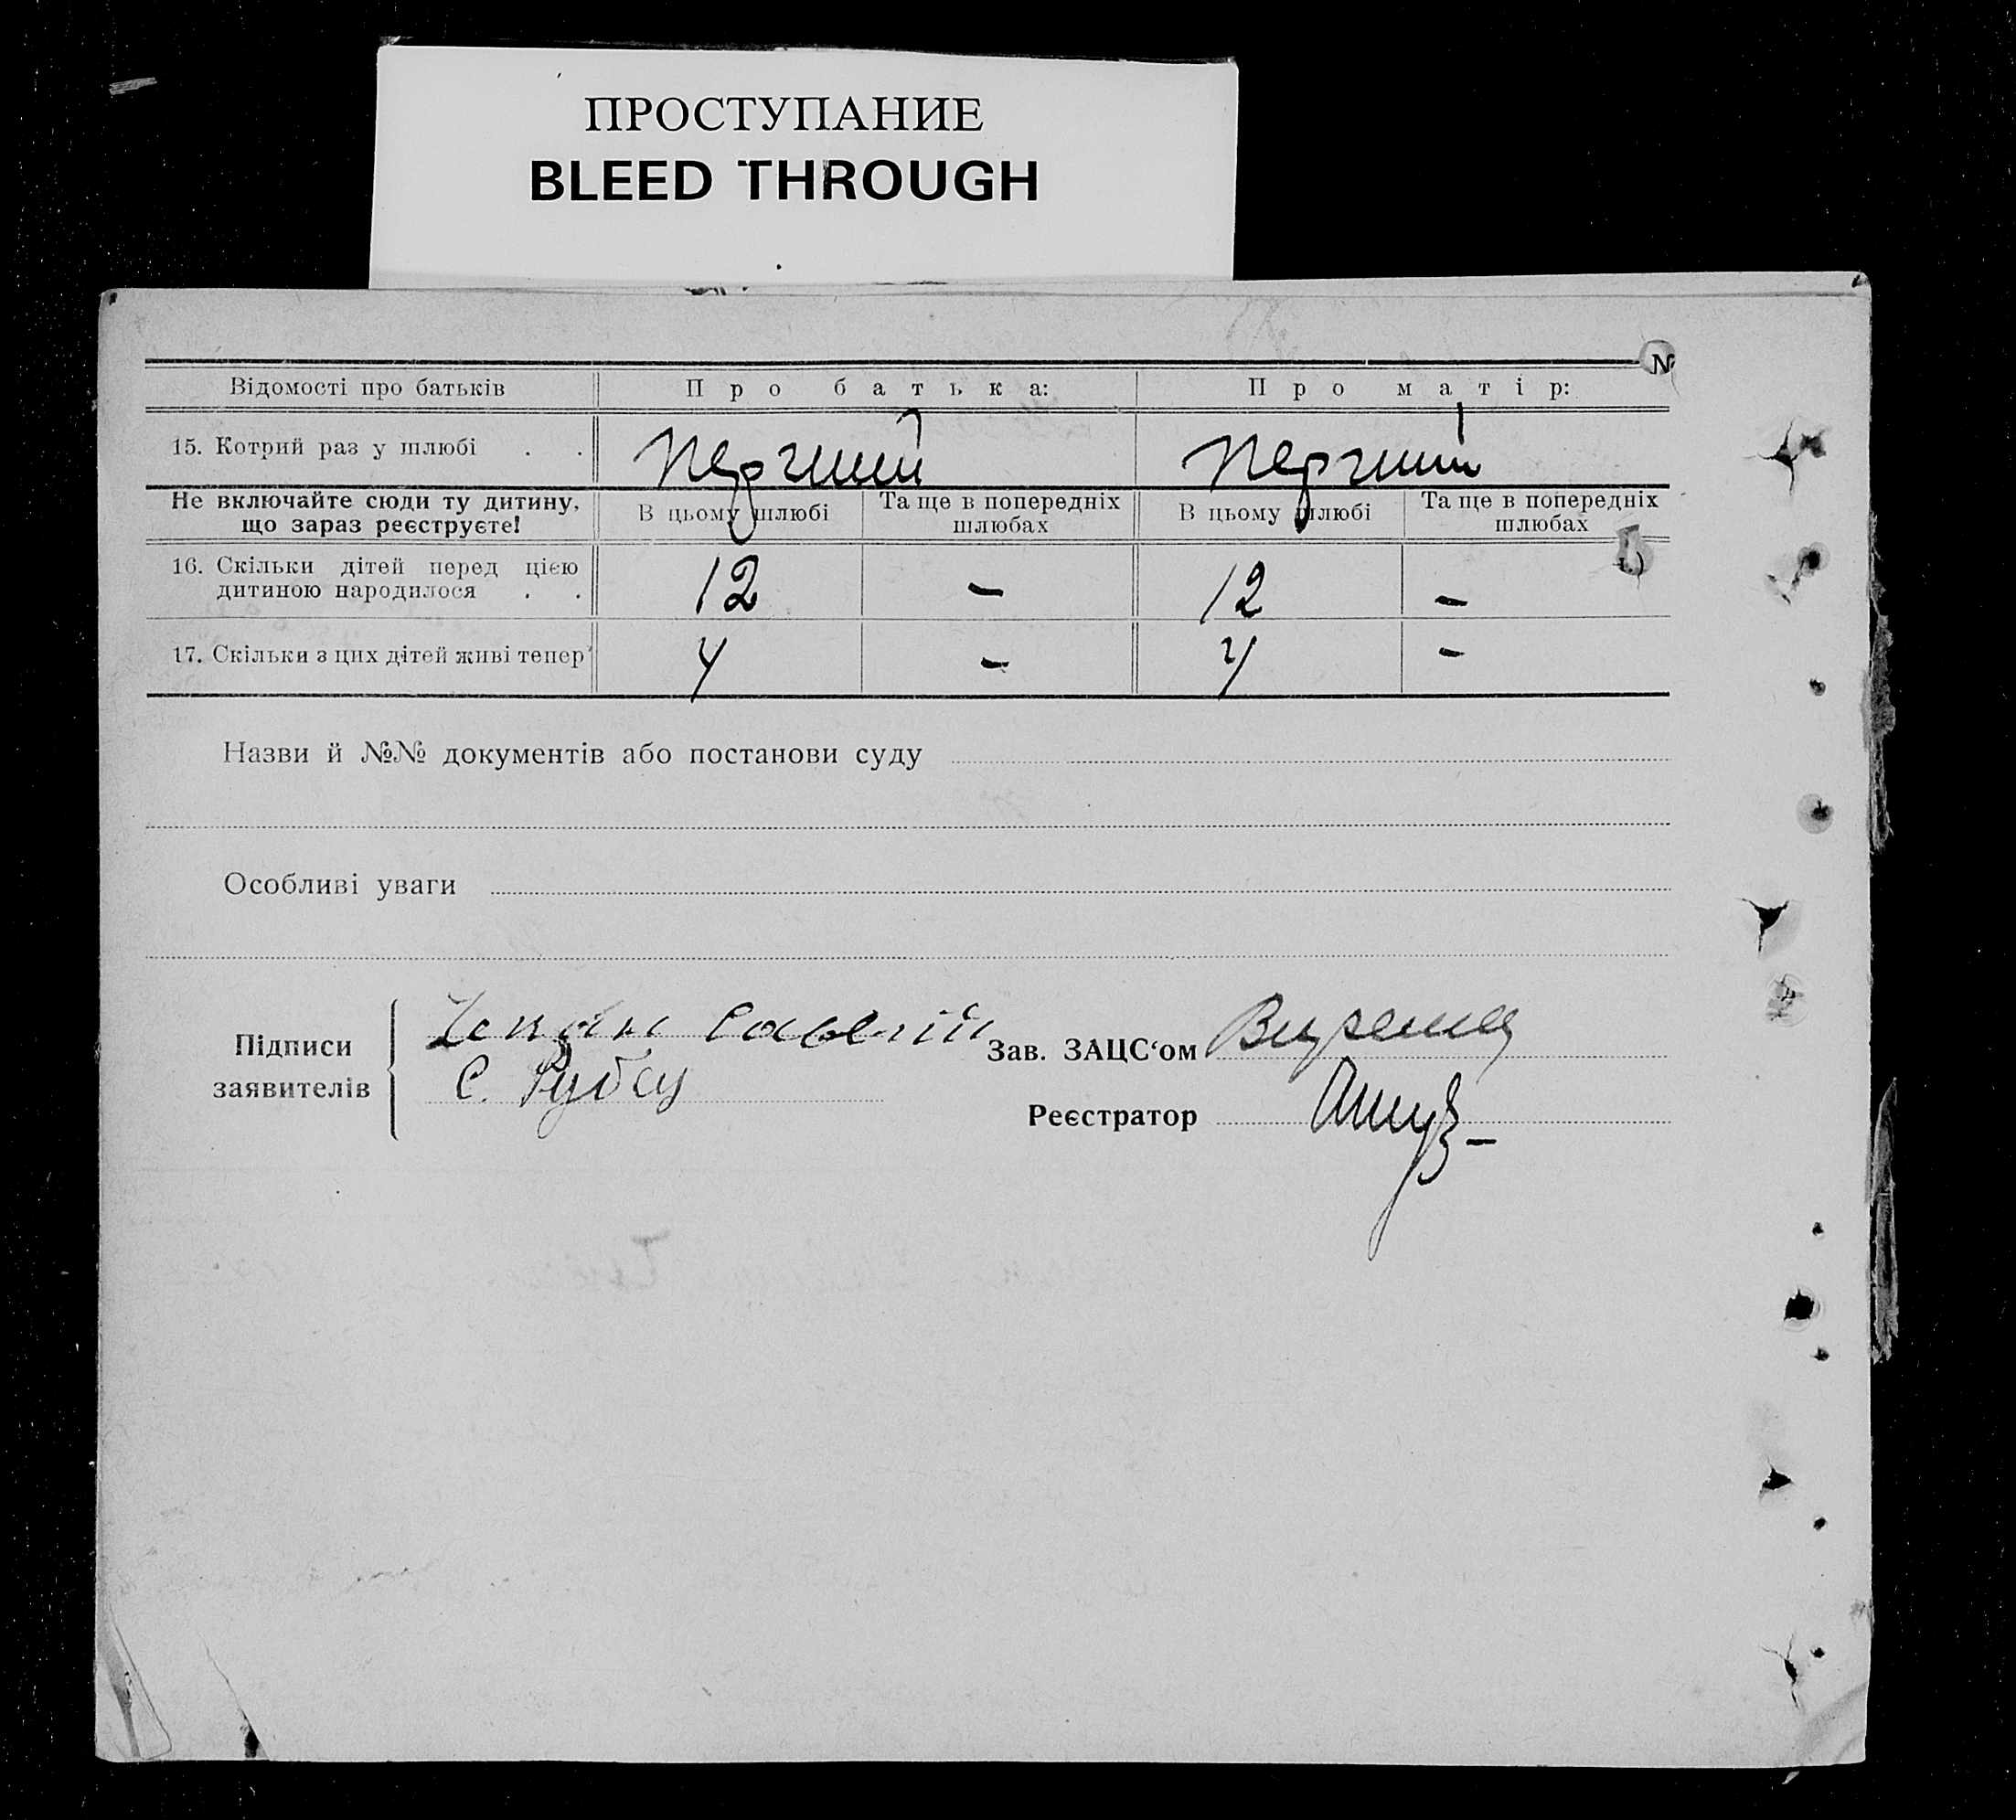 ПРОСТУПАНИЕ
BLEED THROUGH
№
Відомості про батьків Про батька: Про матір:
15. Котрий раз у шлюбі . . перший перший
Не включайте сюди ту дитину, що зараз реєструєте! В цьому шлюбі Та ще в попередніх шлюбах В цьому шлюбі Та ще в попередніх шлюбах
16. Скільки дітей перед цією дитиною народилося . . 12 – 12 –
17. Скільки з цих дітей живі тепер 4 – 4 –
Назви й №№ документів або постанови суду
Особливі уваги
Підписи заявителів
С.
Зав. ЗАЦС‘ом
Реєстратор